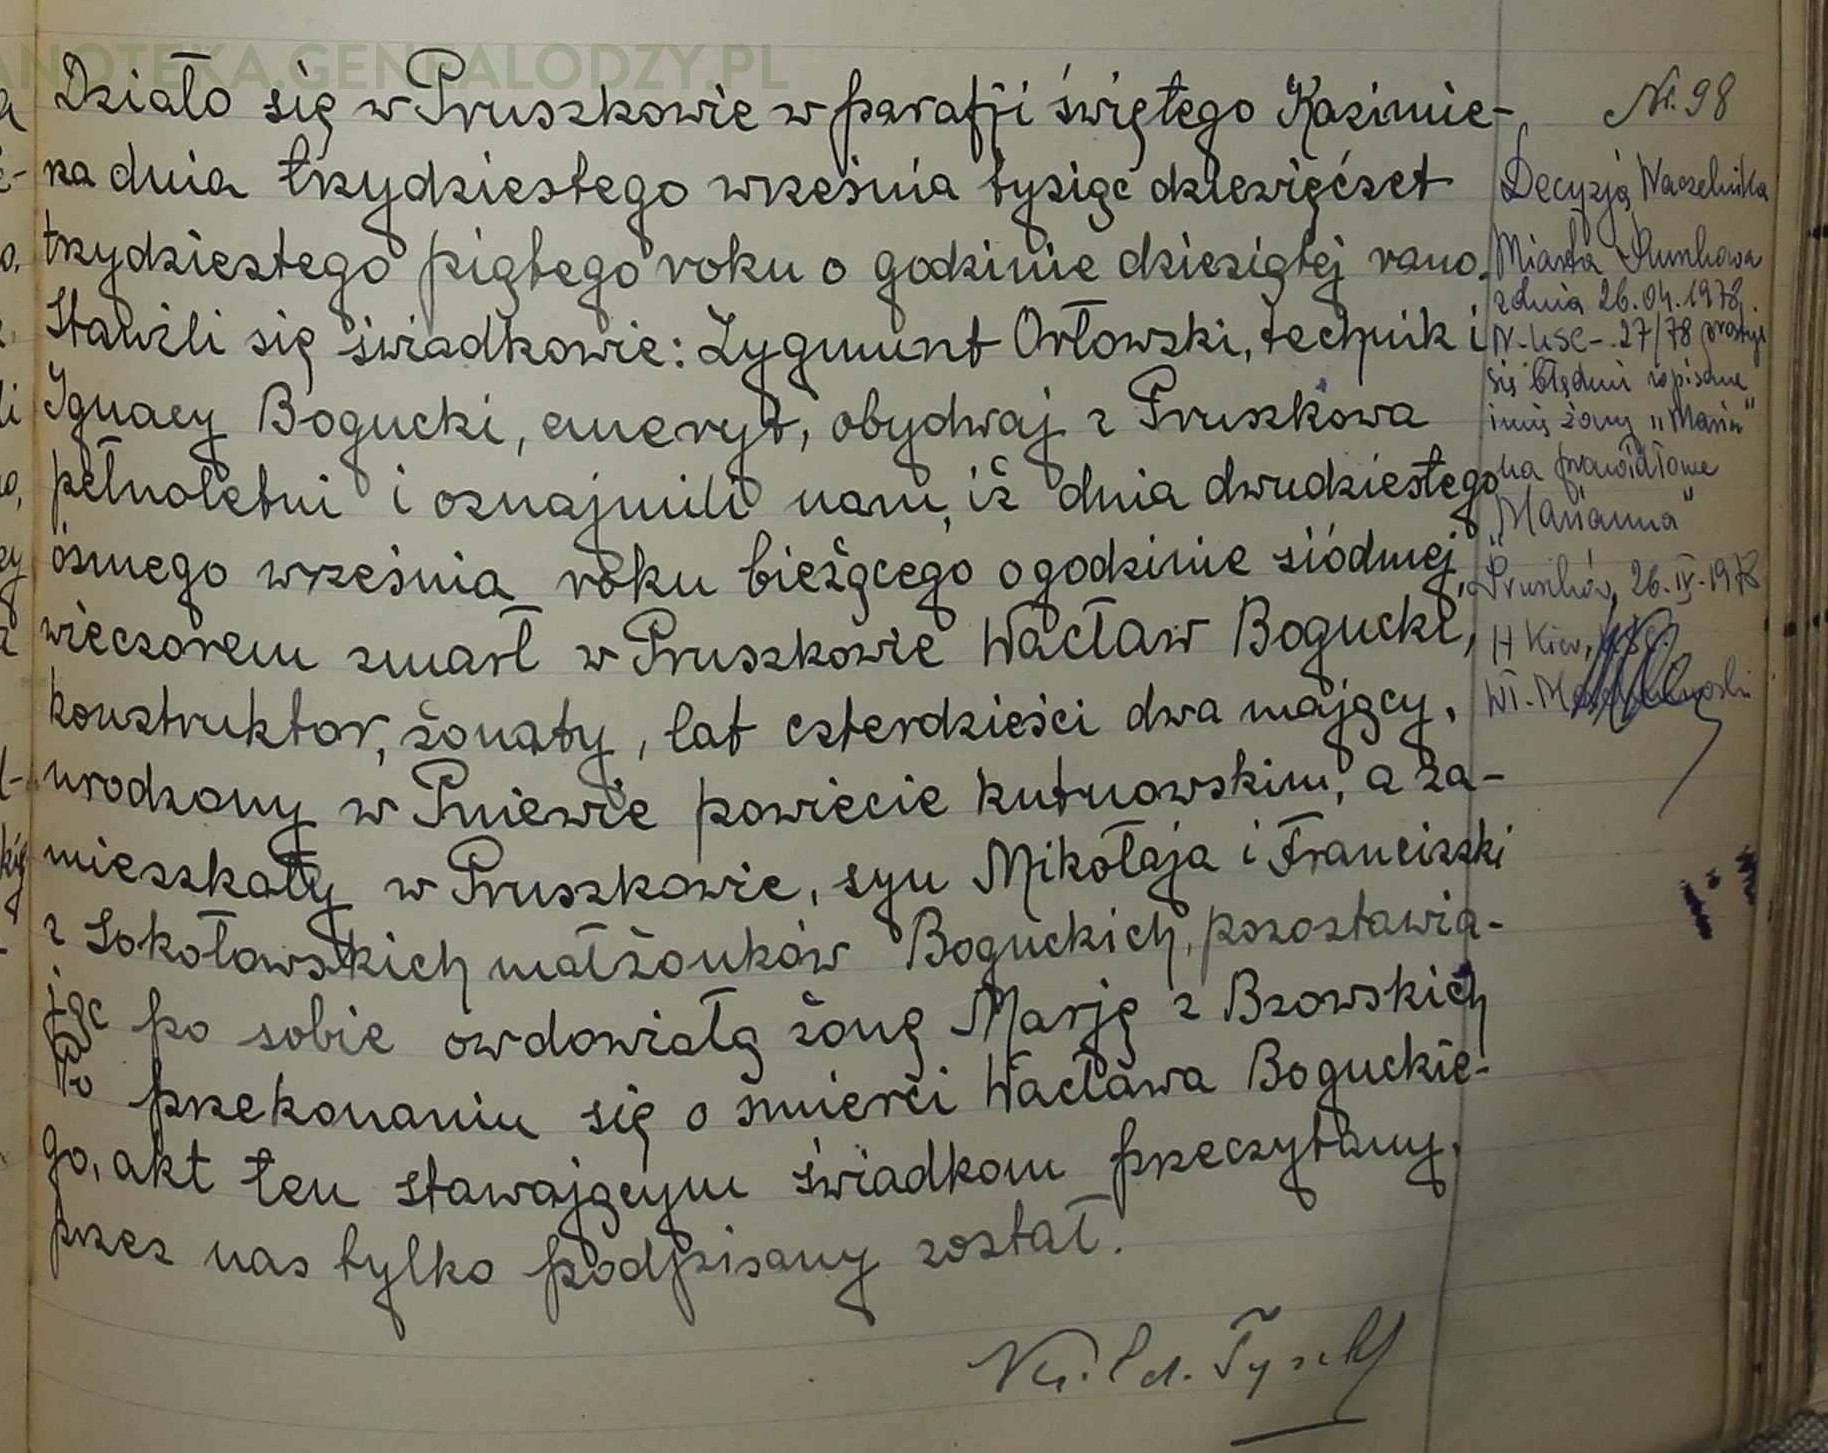 ANOTEKA.GENEALODZY.PL
Działo się w Pruszkowie w parafji świętego Kazimie-
rza dnia trzydziestego września tysiąc dziewięćset
trzydziestego piątego roku o godzinie dziesiątej rano.
Stawili się świadkowie: Zygmunt Orłowski, technik i
Ignacy Bogucki, emeryt, obydwaj z Pruszkowa
pełnoletni i oznajmili nam, iż dnia dwudziestego
ósmego września roku bieżącego o godzinie siódmej
wieczorem zmarł w Pruszkowie Wacław Bogucki,
konstruktor, żonaty, lat czterdzieści dwa mający,
urodzony w Pniewie powiecie kutnowskim, a za-
mieszkały w Pruszkowie, syn Mikołaja i Franciszki
z Sokołowskich małżonków Boguckich, pozostawia-
jąc po sobie owdowiałą żonę Marję z Bzowskich
Po przekonaniu się o śmierci Wacława Boguckie-
go, akt ten stawającym świadkom przeczytany,
przez nas tylko podpisany został.
Nr. 98
Decyzją Naczelnika
Miasta Pruszkowa
z dnia 26.04.1978
N. USC-27/78
się błędnie wpisane
imię żony "Maria"
na prawidłowe
"Marianna"
Pruszków, 26.IV.1978